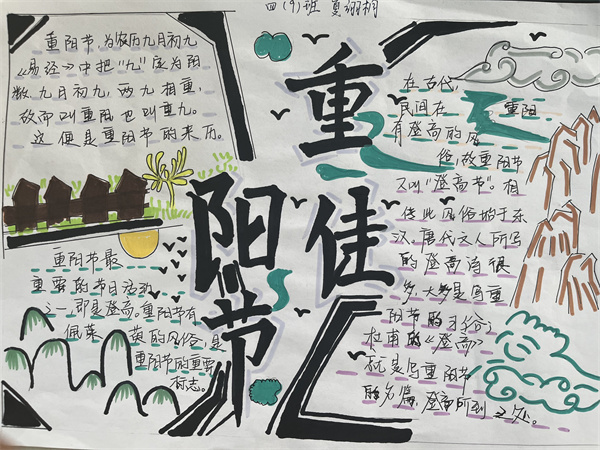 四(9)班 夏翊桐
重阳节,为农历九月初九
《易经》中把“九”定为阳
数,九月初九,两九相重,
故而叫重阳也叫重九。
这便是重阳节的来历。
重阳佳节
重阳节最
重要的节日活动
之一,即是登高。重阳节有
佩茱萸的风俗,是
重阳节的重要
标志。
在古代,
民间在重阳
有登高的风
俗,故重阳节
又叫“登高节”。相
传此风俗始于东
汉。唐代文人所写
的登高诗很
多,大多是写重
阳节的习俗;
杜甫的《登高》
就是写重阳节
的名篇,登高所到之处。